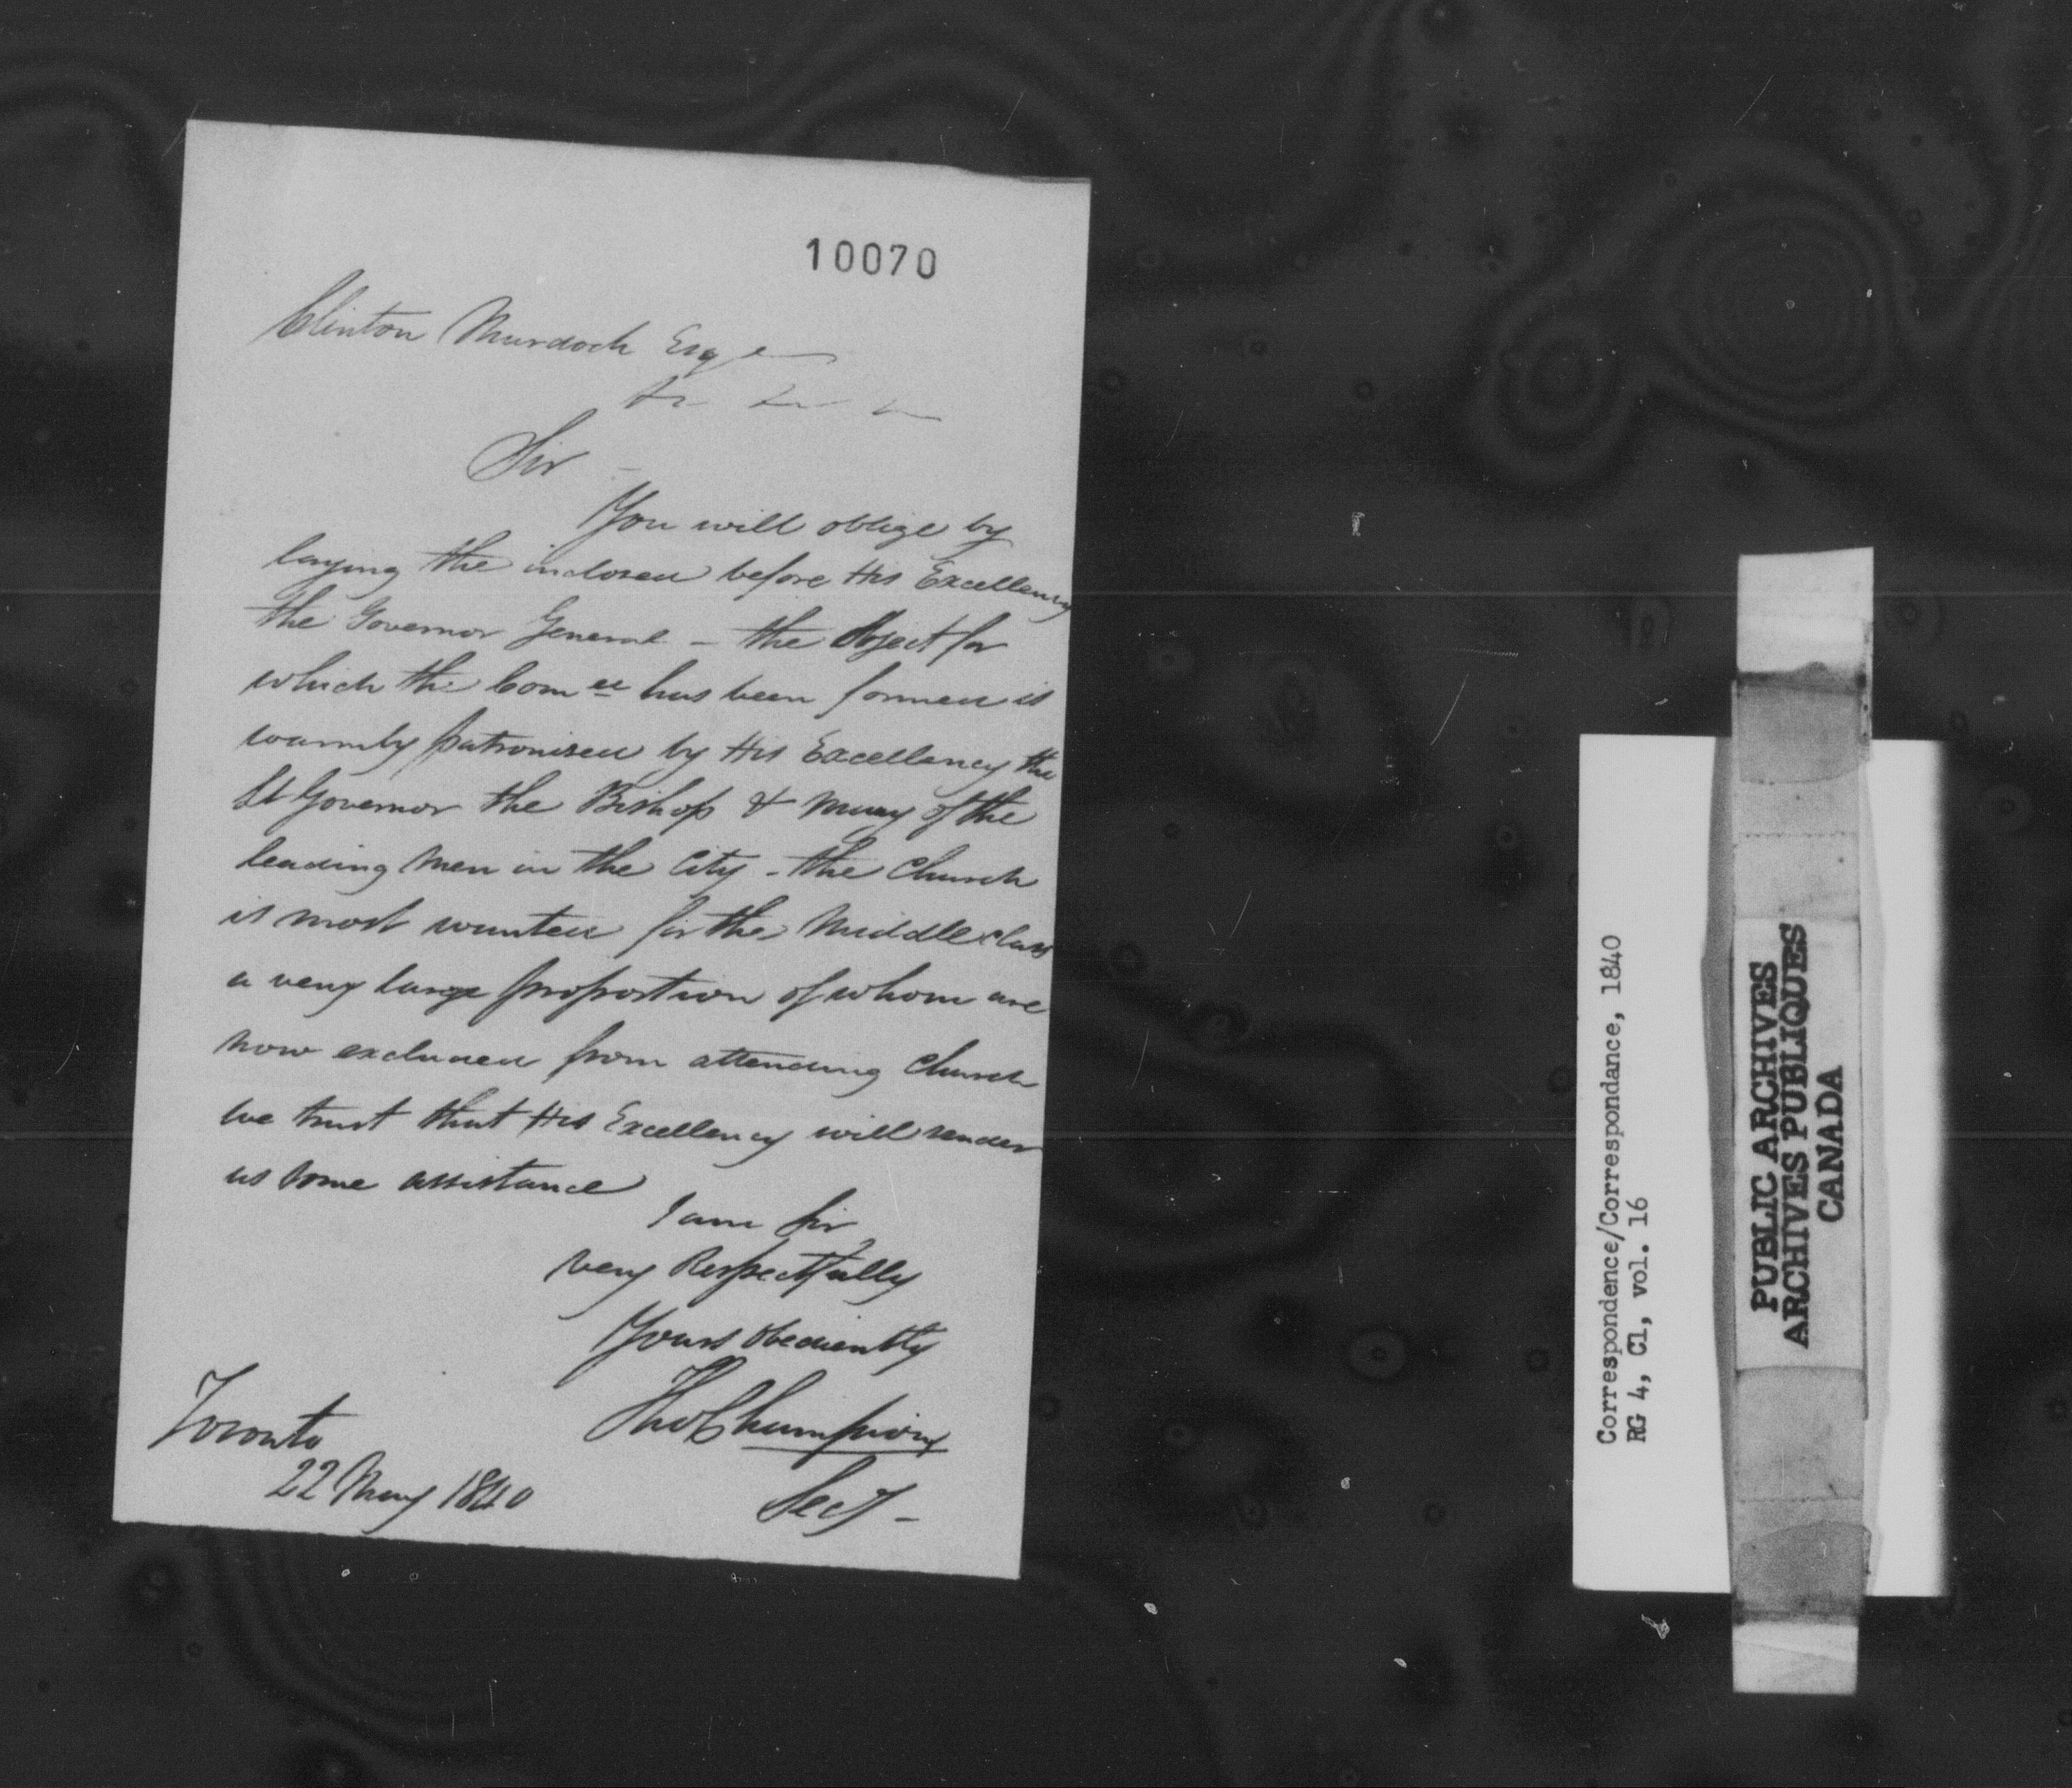 10070
Clinton Murdoch Esqe
&c &c &c
Sir -
You will oblige by
laying the inclosed before His Excellency
the Governor General - the Object for
which the Comee has been formed is
warmly patronised by His Excellency the
Lt Governor the Bishop & many of the
leading Men in the City - the Church
is most wanted for the Middle class
a very large proportion of whom are
now excluded from attending Church
We trust that His Excellency will render
us some assistance
I am Sir
very Respectfully
Yours Obediently
Tho Champion
Secy -
Toronto
22 May 1840
Correspondence/Correspondance, 1840
RG 4, C1, vol. 16
PUBLIC ARCHIVES
ARCHIVES PUBLIQUES
CANADA